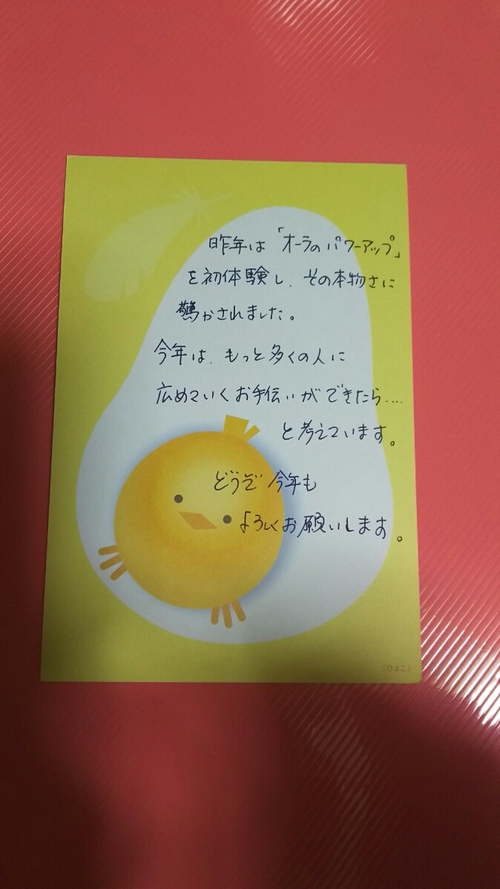 昨年は「オーラのパワーアップ」
を初体験し、その本物さに
驚かされました。
今年は、もっと多くの人に
広めていくお手伝いができたら....
と考えています。
どうぞ今年も
よろしくお願いします。
「ひよこ」